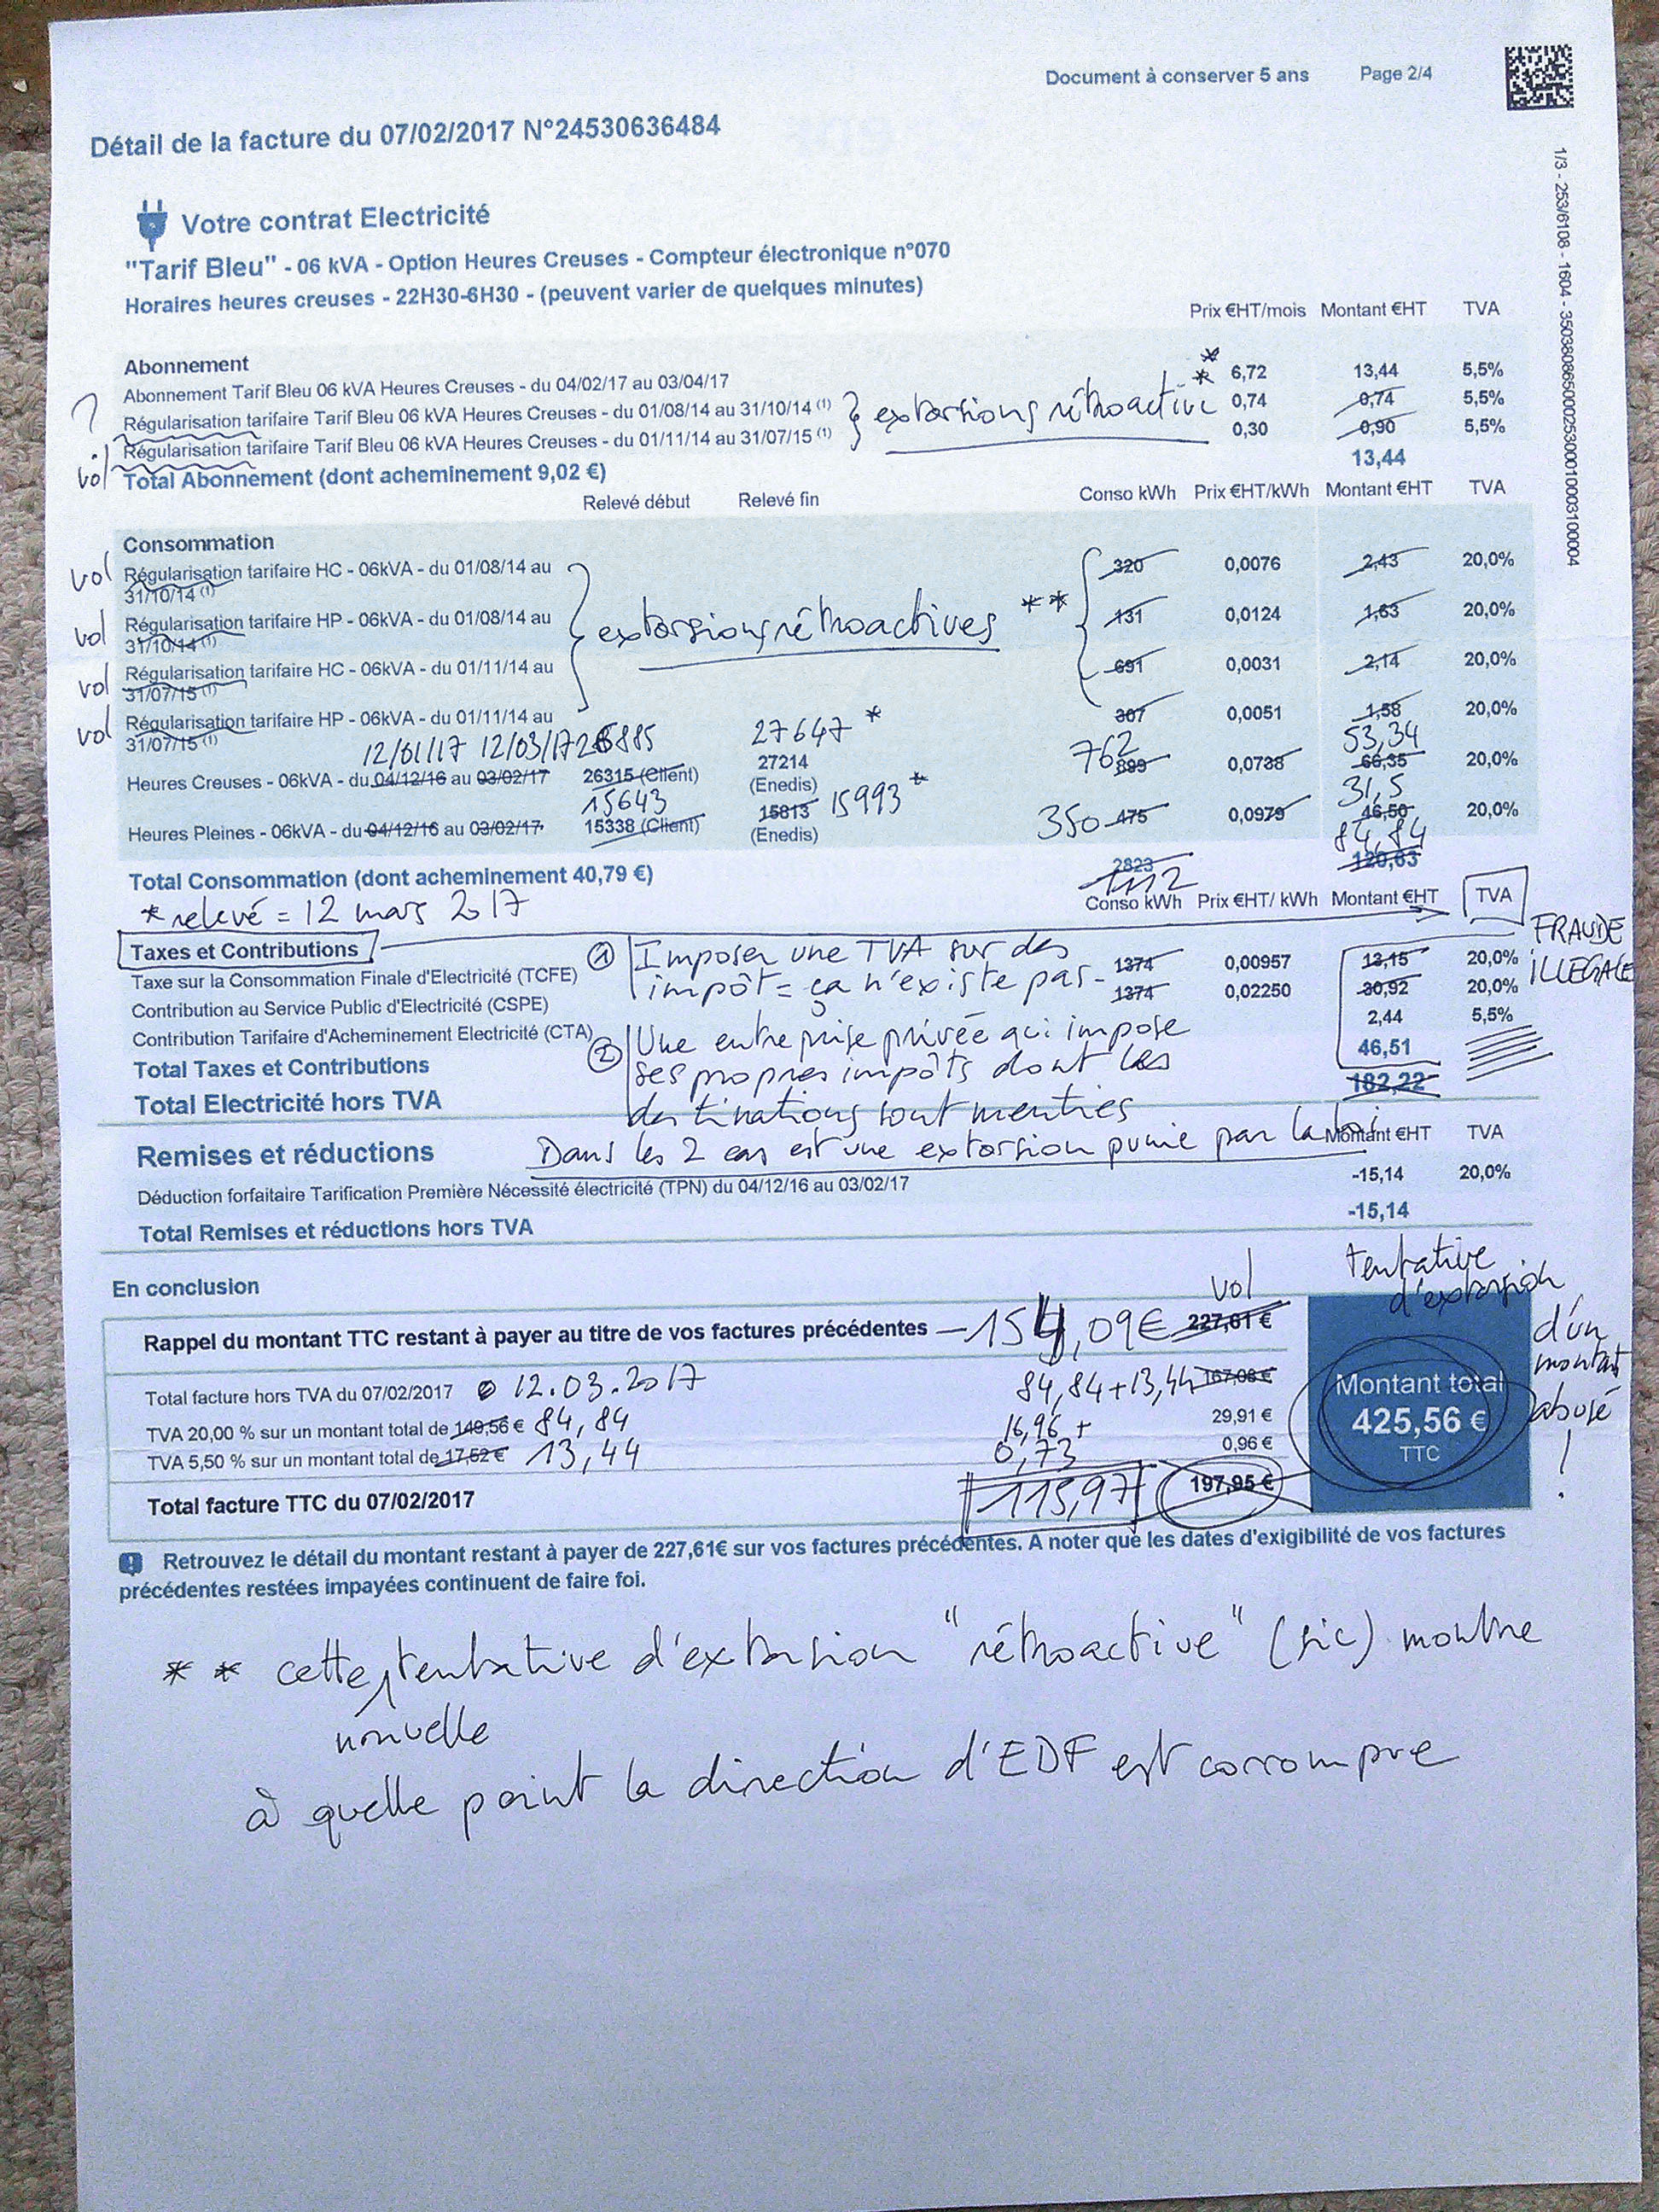 Document à conserver 5 ans Page 2/4
Détail de la facture du 07/02/2017 N°24530636484
1/3 - 253/6108 - 1604 - 35038086500025300010003100004
Votre contrat Electricité
"Tarif Bleu" - 06 kVA - Option Heures Creuses - Compteur électronique n°070
Horaires heures creuses - 22H30-6H30 - (peuvent varier de quelques minutes)
Prix €HT/mois Montant €HT TVA
Abonnement *
Abonnement Tarif Bleu 06 kVA Heures Creuses - du 04/02/17 au 03/04/17 * 6,72 13,44 5,5%
? Régularisation tarifaire Tarif Bleu 06 kVA Heures Creuses - du 01/08/14 au 31/10/14 (1) } extorsions rétroactive 0,74 0,74 5,5%
vol Régularisation tarifaire Tarif Bleu 06 kVA Heures Creuses - du 01/11/14 au 31/07/15 (1) 0,30 0,90 5,5%
Total Abonnement (dont acheminement 9,02 €) 13,44
Relevé début Relevé fin Conso kWh Prix €HT/kWh Montant €HT TVA
Consommation
vol Régularisation tarifaire HC - 06kVA - du 01/08/14 au 320 0,0076 2,43 20,0%
31/10/14 (1)
vol Régularisation tarifaire HP - 06kVA - du 01/08/14 au } extorsions rétroactives ** { 131 0,0124 1,63 20,0%
31/10/14 (1)
vol Régularisation tarifaire HC - 06kVA - du 01/11/14 au 691 0,0031 2,14 20,0%
31/07/15 (1)
vol Régularisation tarifaire HP - 06kVA - du 01/11/14 au 307 0,0051 1,58 20,0%
31/07/15 (1) 12/01/17 12/03/17 26885 27647 * 762 53,34
Heures Creuses - 06kVA - du 04/12/16 au 03/02/17 26315 (Client) 27214 899 0,0738 66,35 20,0%
(Enedis)
15643 15993 * 31,5
Heures Pleines - 06kVA - du 04/12/16 au 03/02/17 15338 (Client) 15813 350 475 0,0979 46,50 20,0%
(Enedis)
84,84
Total Consommation (dont acheminement 40,79 €) 2823 120,63
* relevé = 12 mars 2017 1112
Conso kWh Prix €HT/ kWh Montant €HT TVA
Taxes et Contributions
Taxe sur la Consommation Finale d'Electricité (TCFE) 1374 0,00957 13,15 20,0%
Contribution au Service Public d'Electricité (CSPE) 1374 0,02250 30,92 20,0%
Contribution Tarifaire d'Acheminement Electricité (CTA) 2,44 5,5%
Total Taxes et Contributions 46,51
Total Electricité hors TVA 182,22
FRAUDE
ILLEGALE
① Imposer une TVA sur des
impôt = ça n'existe pas -
② Une entreprise privée qui impose
ses propres impôts dont les
destinations sont menties
Dans les 2 cas est une extorsion punie par la loi
Remises et réductions Montant €HT TVA
Déduction forfaitaire Tarification Première Nécessité électricité (TPN) du 04/12/16 au 03/02/17 -15,14 20,0%
Total Remises et réductions hors TVA -15,14
En conclusion
vol
tentative
d'extorsion
d'un
montant
abusé
!
Rappel du montant TTC restant à payer au titre de vos factures précédentes — 154,09€ 227,61 €
Total facture hors TVA du 07/02/2017 12.03.2017 84,84+13,44 167,08 €
TVA 20,00 % sur un montant total de 149,56 € 84,84 16,96 + 29,91 €
TVA 5,50 % sur un montant total de 17,52 € 13,44 0,73 0,96 €
Total facture TTC du 07/02/2017 115,97 197,95 €
Montant total
425,56 €
TTC
Retrouvez le détail du montant restant à payer de 227,61€ sur vos factures précédentes. A noter que les dates d'exigibilité de vos factures
précédentes restées impayées continuent de faire foi.
** cette tentative d'extorsion "rétroactive" (sic) montre
nouvelle
à quelle point la direction d'EDF est corrompue